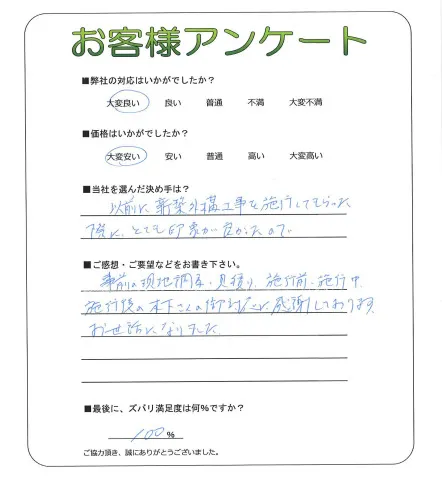 お客様アンケート
■弊社の対応はいかがでしたか?
大変良い 良い 普通 不満 大変不満
■価格はいかがでしたか?
大変安い 安い 普通 高い 大変高い
■当社を選んだ決め手は?
以前に、新築外構工事を施行してもらった
際に、とても印象が良かたので
■ご感想・ご要望などをお書き下さい。
事前の現地調査・見積り、施行前・施行中
施行後の木下さんの御対応に感謝しております。
お世話になりました。
■最後に、ズバリ満足度は何%ですか?
100 %
ご協力頂き、誠にありがとうございました。